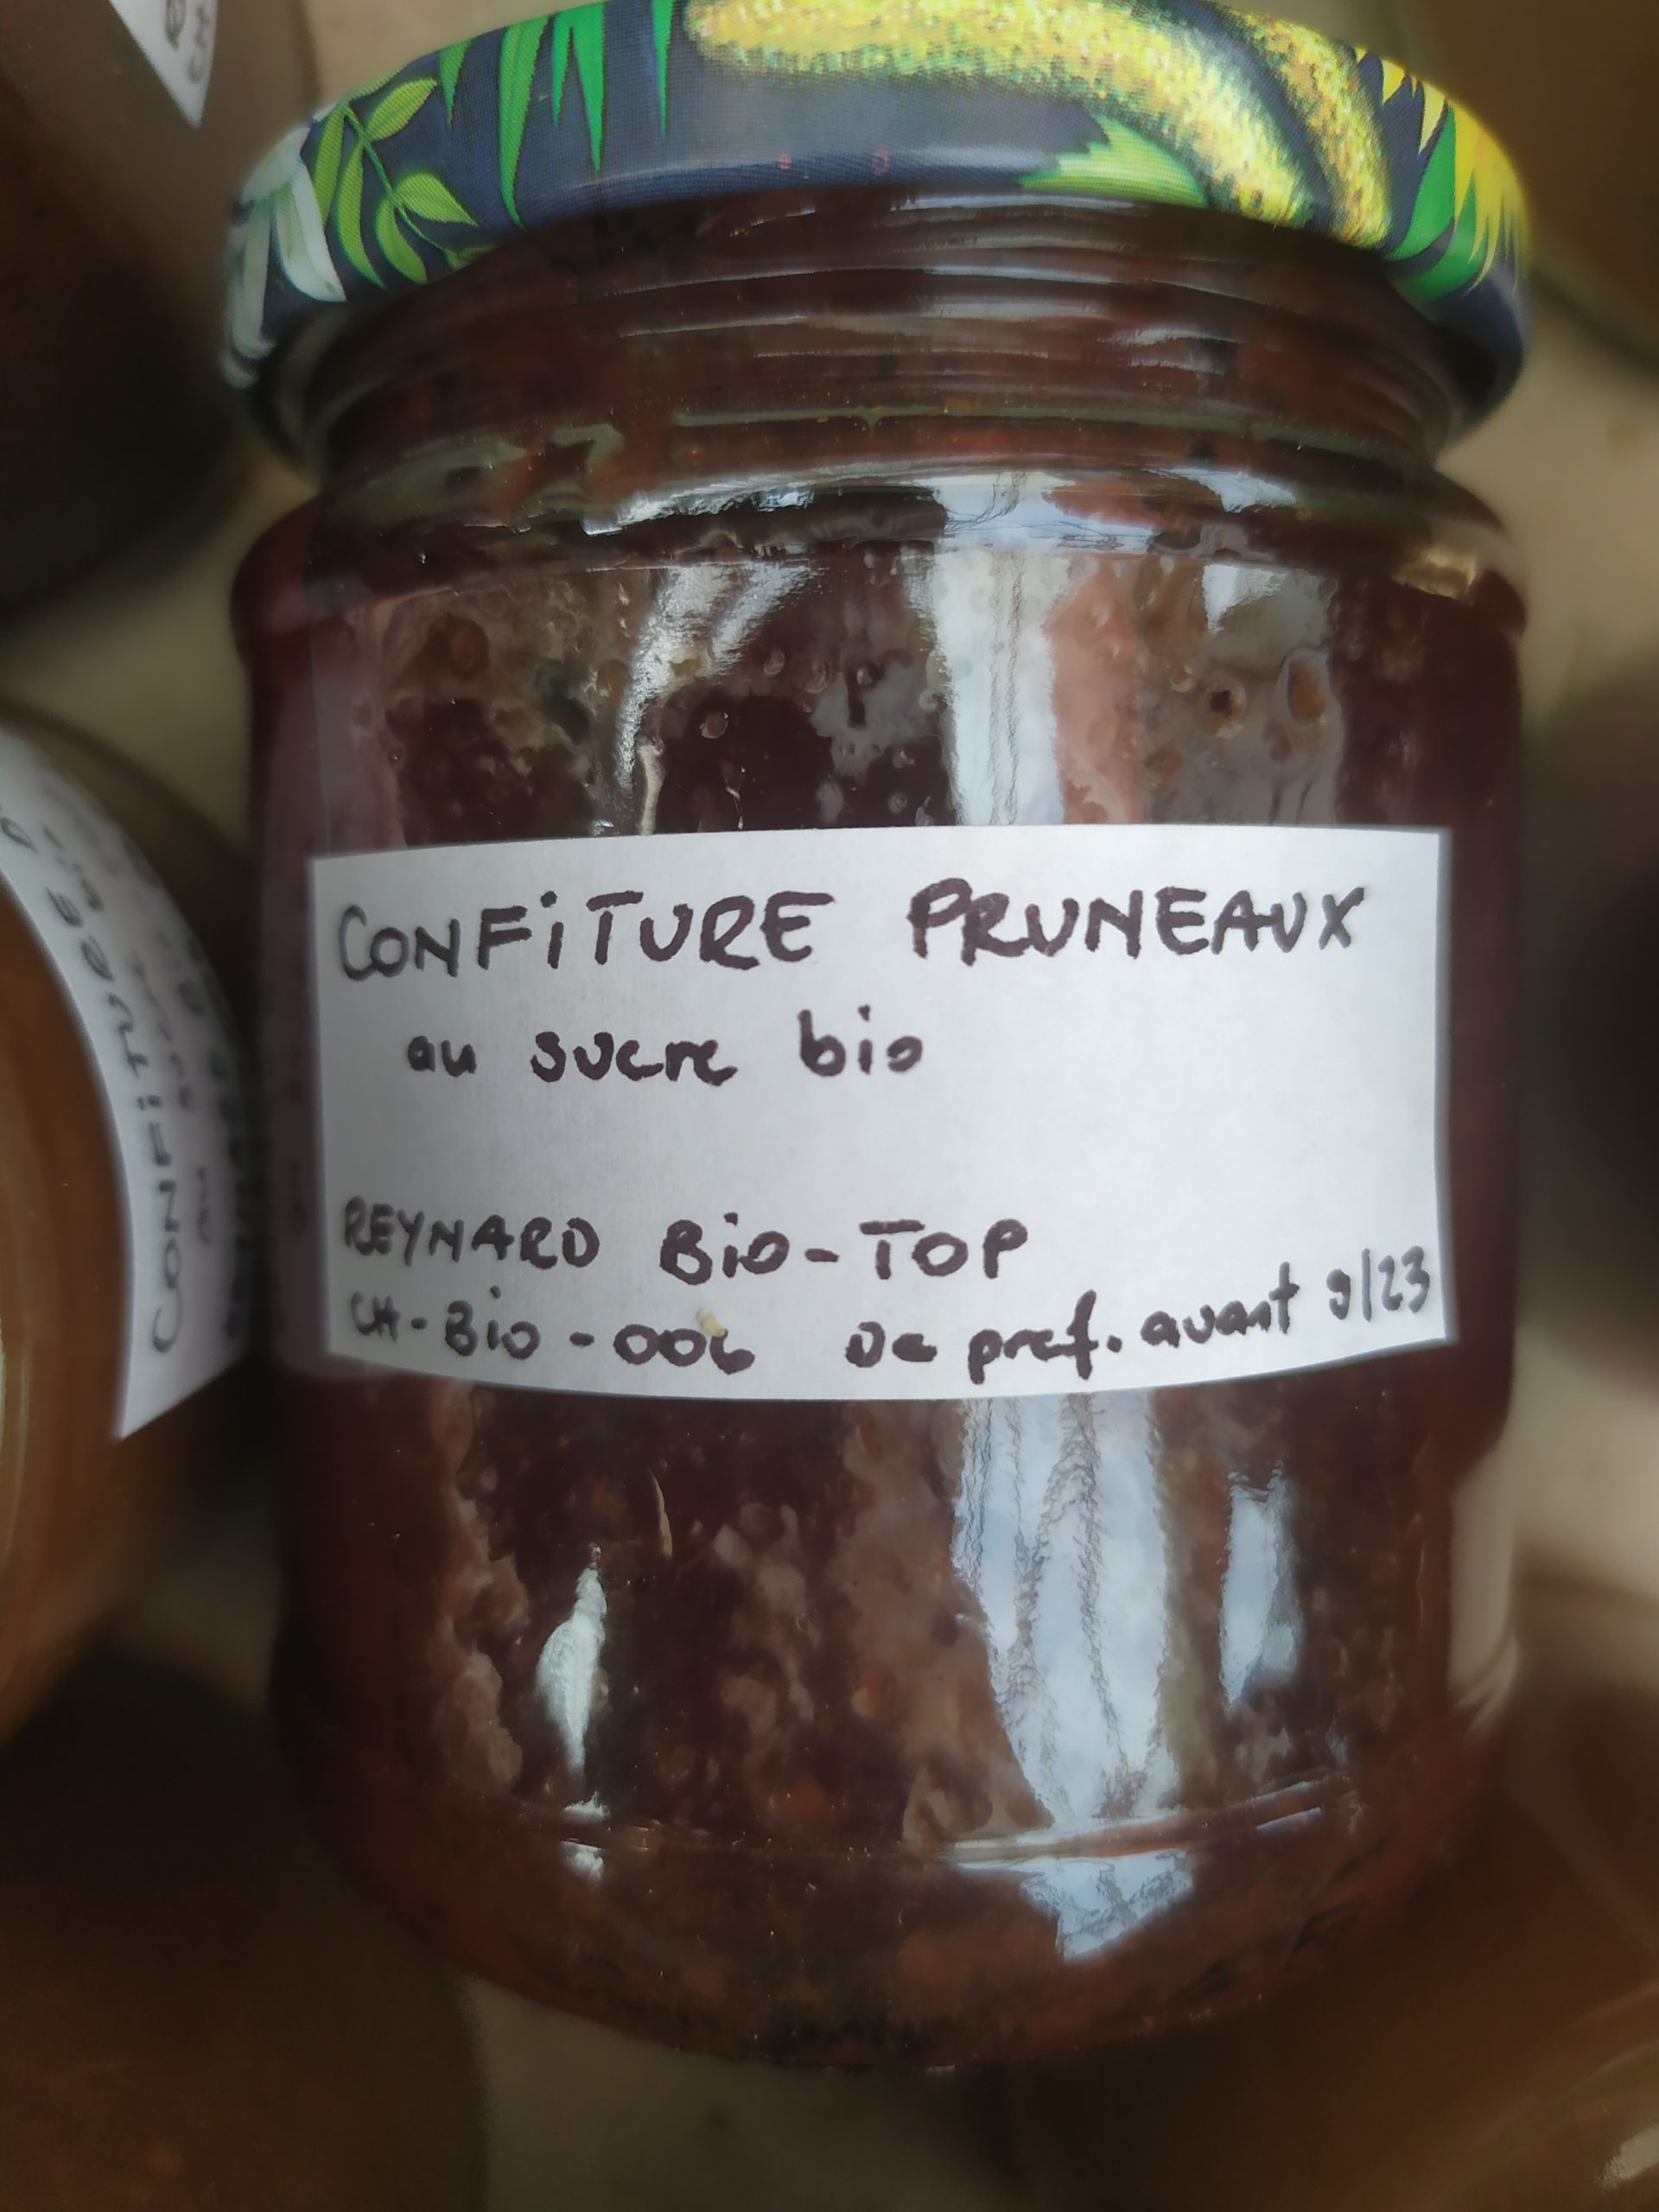 CONFiTURE PRUNEAUX
au sucre bio
REYNARD BiO-TOP
CH-BiO-006 De pref. avant 9/23
CONFiTURE
au